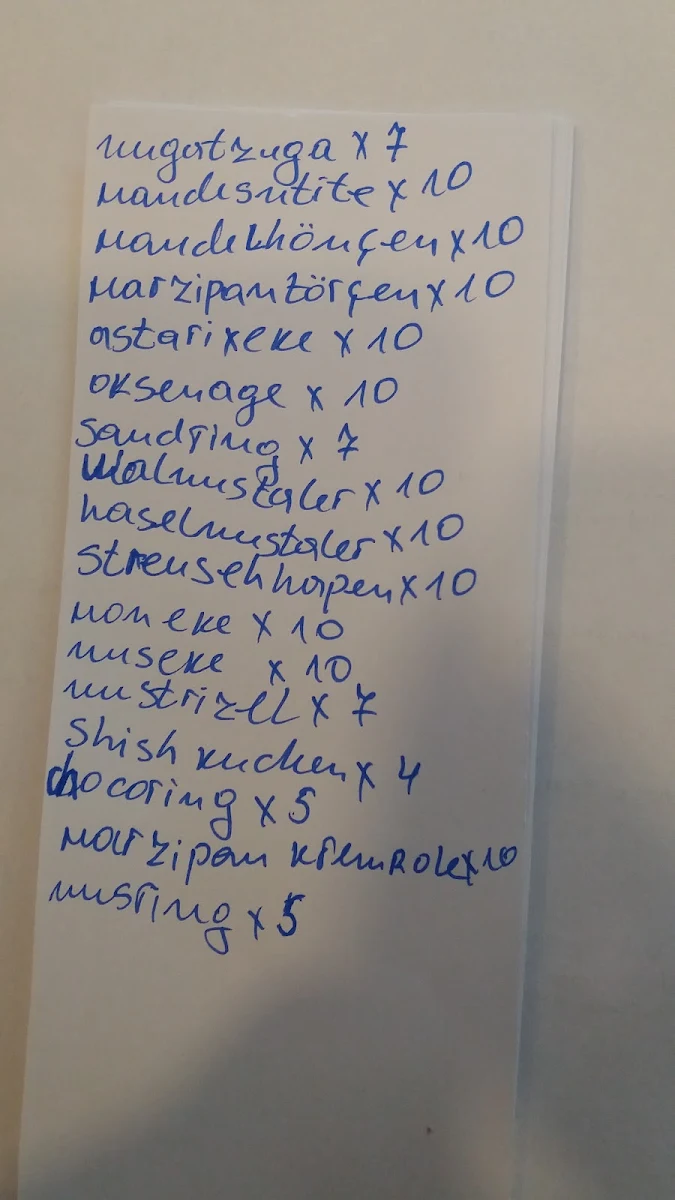 nugatzuga x 7
Mandesnitite x 10
Mandelhönçen x 10
Marzipantörçen x 10
astarixeke x 10
oksenage x 10
Sandring x 7
Walnustaler x 10
haselnustaler x 10
Streuselhhapen x 10
Moneke x 10
nuseke x 10
nustrizell x 7
Shish kuchen x 4
chocoring x 5
Marzipan kremRole x 10
nusring x 5